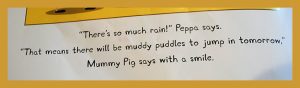 "There's so much rain!" Peppa says.
"That means there will be muddy puddles to jump in tomorrow,"
Mummy Pig says with a smile.